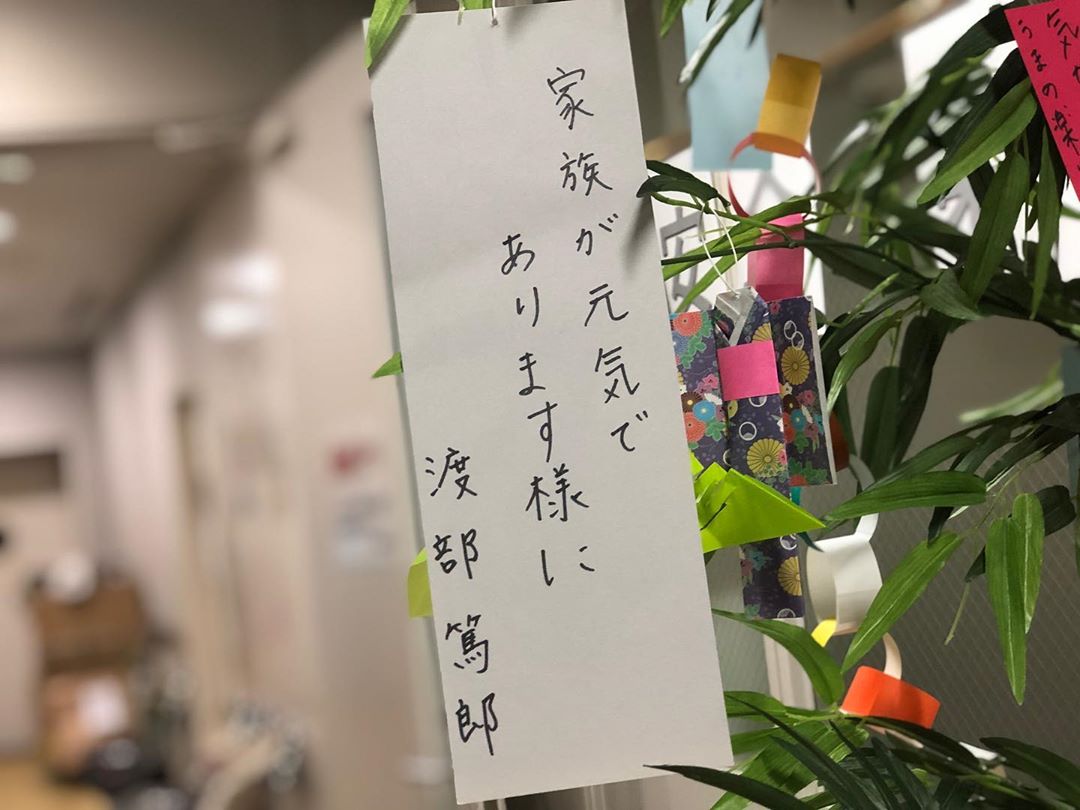 家族が元気で
あります様に
渡部篤郎
うまの楽